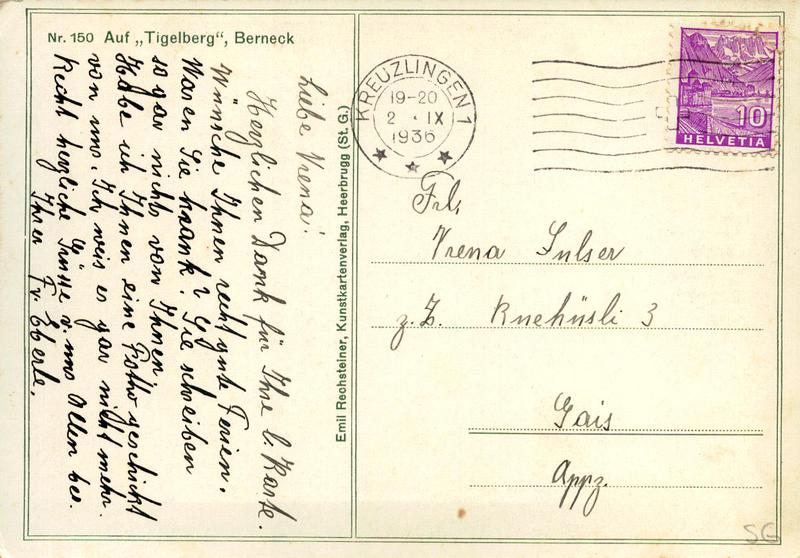 Nr. 150 Auf „Tigelberg", Berneck
Liebe Vrena!
Herzlichen Dank für Ihre l. Karte.
Wünsche Ihnen recht gute Ferien.
Waren Sie krank? Sie schreiben
so gar nichts von Ihnen.
Habe ich Ihnen eine Photo geschickt
von uns. Ich weis es gar nicht mehr.
Recht herzliche Grüsse v. uns Allen bes.
Ihrer Fr. Eberle.
Emil Rechsteiner, Kunstkartenverlag, Heerbrugg (St. G.)
KREUZLINGEN 1
19-20
2. IX
1936
10
HELVETIA
Frl.
Vrena Sulser
z. Z. Knehüsli 3
Gais
Appz.
SG